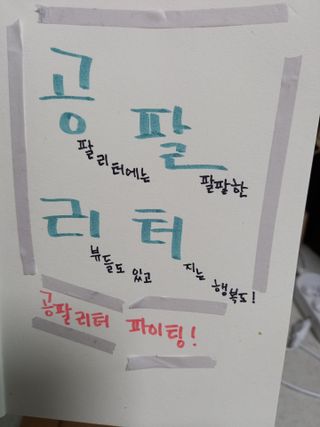 공팔리터에는
팔팔팔한
리뷰들도 있고
터지는 행복도!
공팔리터 파이팅!